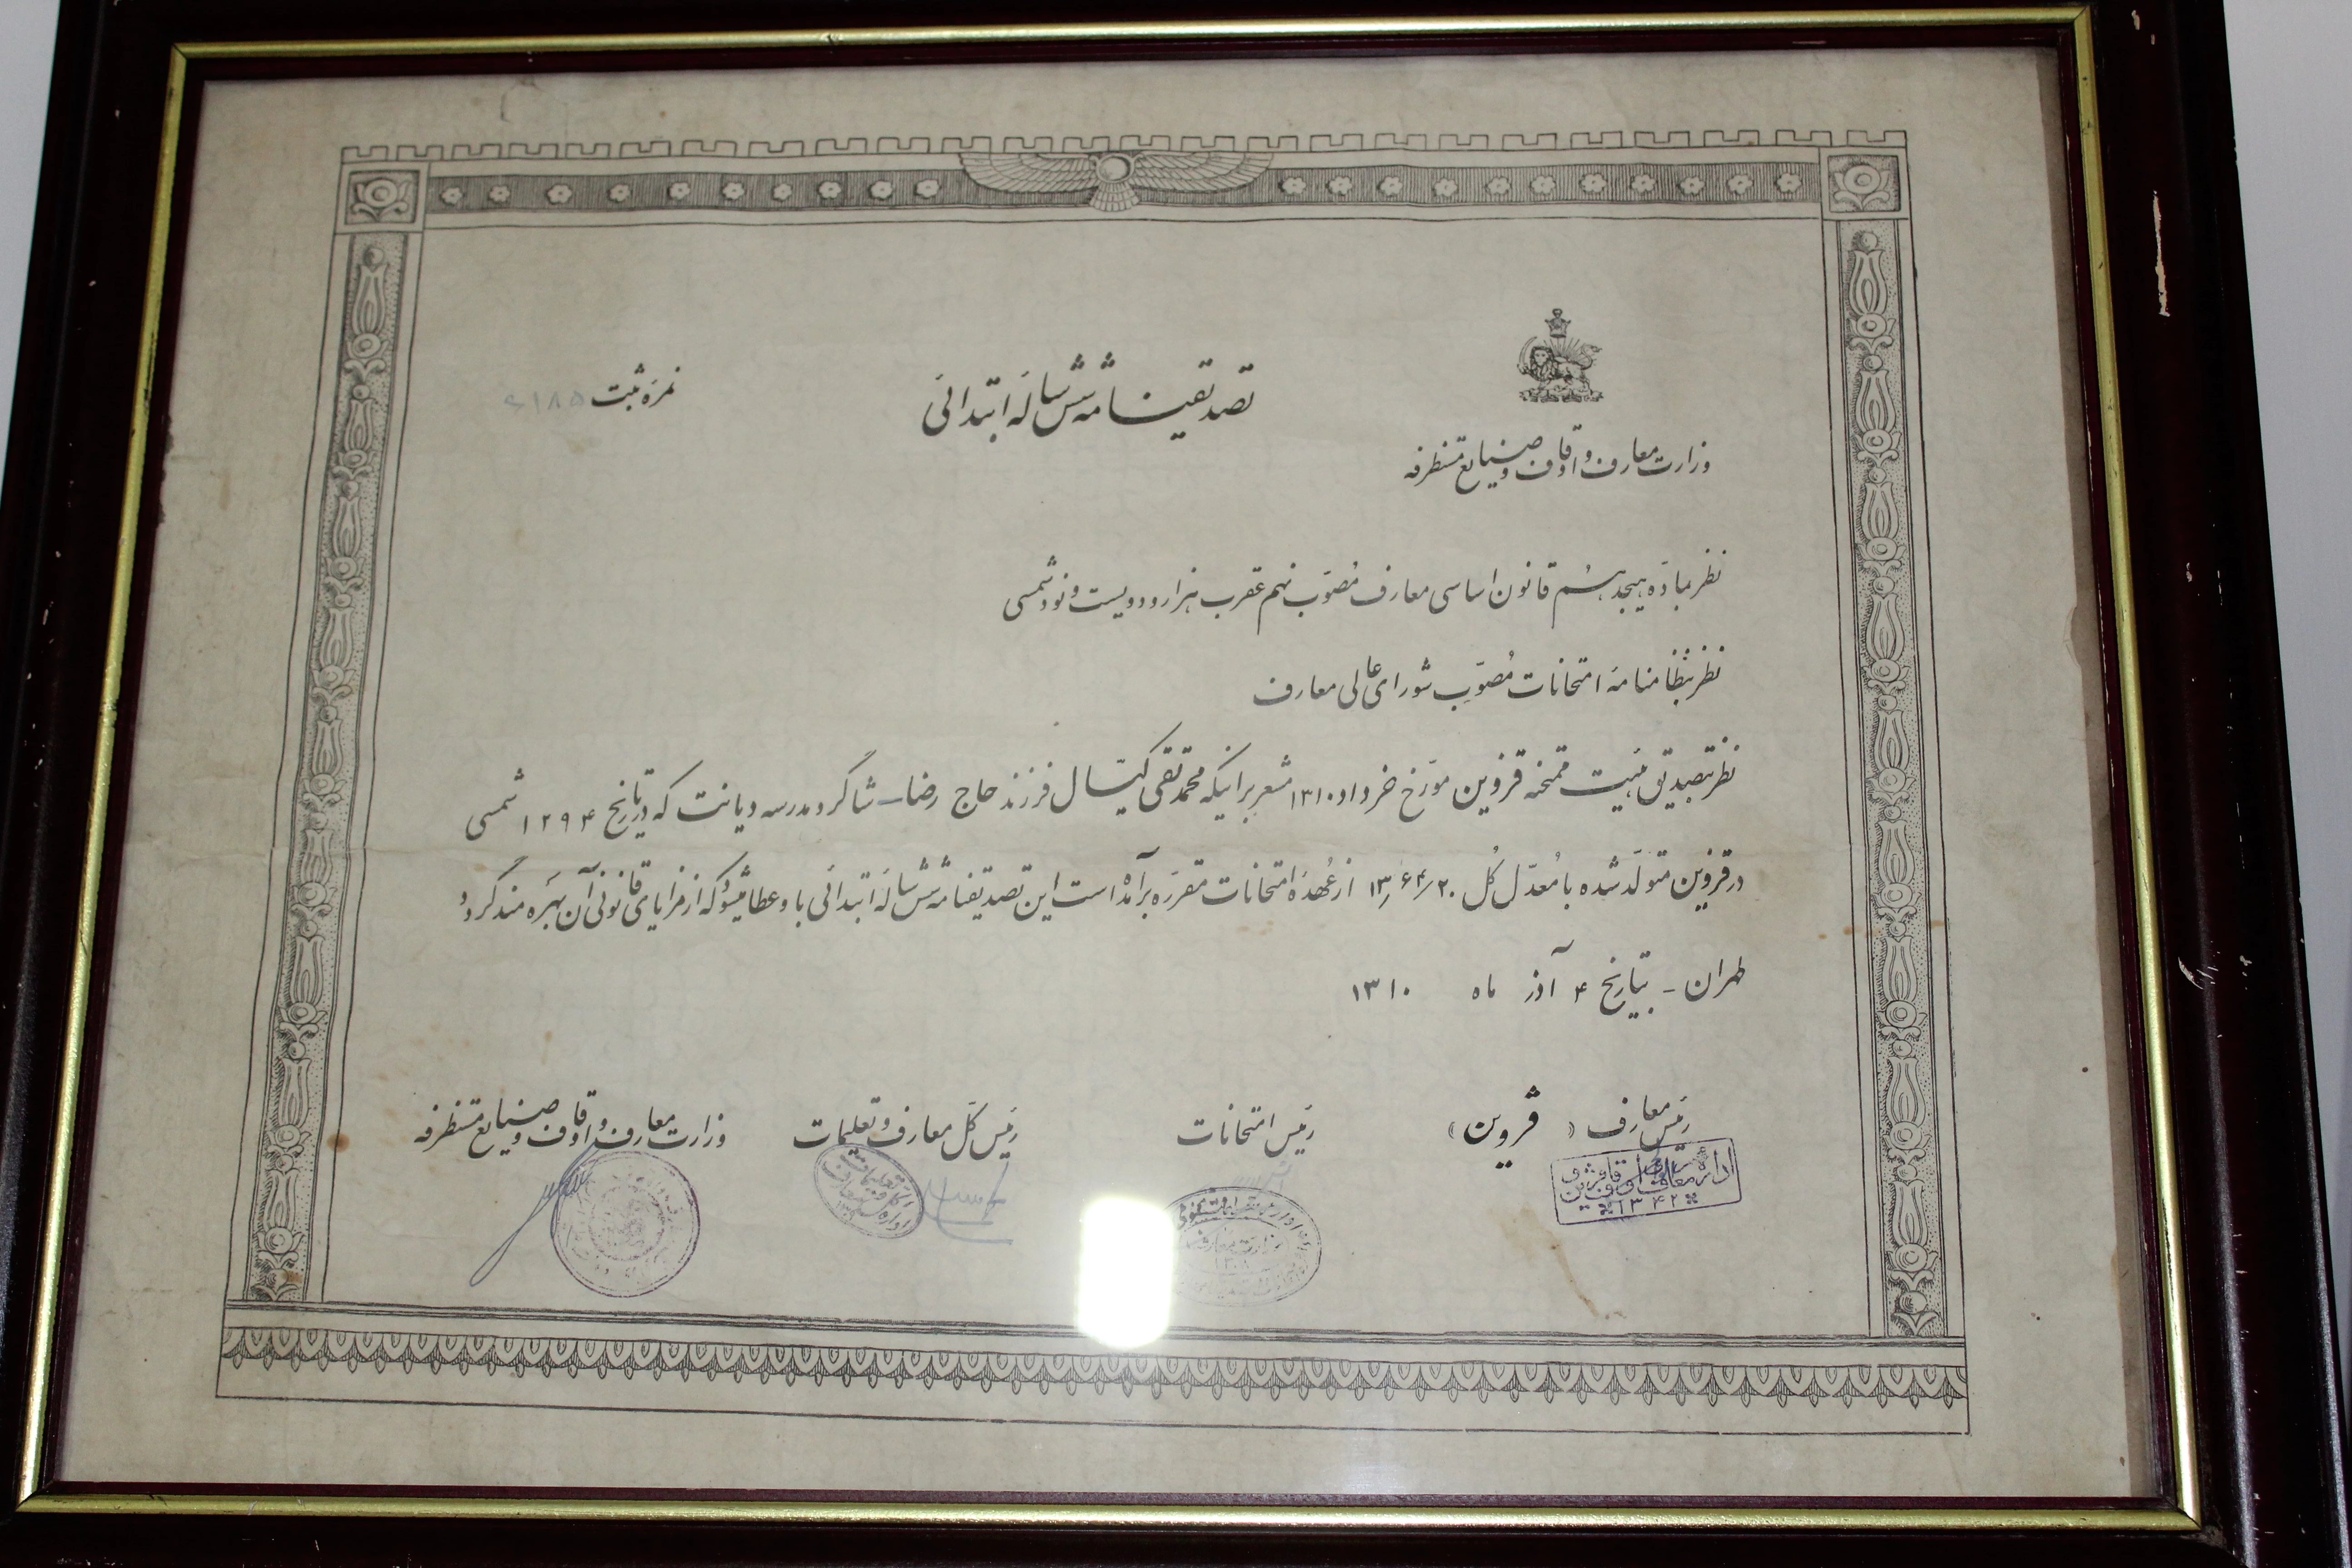 تصدیقنامه شش ساله ابتدائی
نمره ثبت
وزارت معارف و اوقاف و صنایع مستظرفه
نظر بماده هیجدهم قانون اساسی معارف مصوب نهم عقرب هزار و دویست و نود شمسی
نظر بنظامنامه امتحانات مصوب شورای عالی معارف
نظر بتصدیق هیئت ممتحنه قزوین مورخ خرداد ۱۳۱۰ مشعر بر اینکه محمد تقی کیّال فرزند حاج رضا شاگرد مدرسه دیانت که در تاریخ ۱۲۹۴ شمسی
در قزوین متولد شده با معدل کل از عهده امتحانات مقرره برآمده است این تصدیقنامه شش ساله ابتدائی باو عطا میشود که از مزایای قانونی آن بهره مند گردد
طهران - بتاریخ ۴ آذر ماه ۱۳۱۰
رئیس معارف ( قزوین )
رئیس امتحانات
رئیس کل معارف و تعلیمات
وزارت معارف و اوقاف و صنایع مستظرفه
اداره معارف و اوقاف قزوین
۱۳۴۲